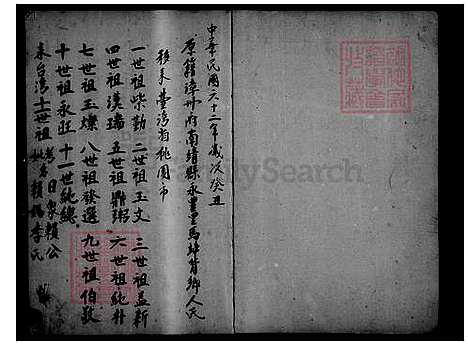 中華民國六十二年歲次癸丑
原籍漳州府南靖縣永豐里馬坪背鄉人氏
移來臺灣省桃園市
一世祖柴勤 二世祖玉文 三世祖孟新
四世祖漢瑞 五世祖鼎弼 六世祖純朴
七世祖玉燦 八世祖發選 九世祖伯敦
十世祖永旺 十一世純總
來台灣十二世祖 考日象賴公 妣名賴媽李氏
FamilySearch